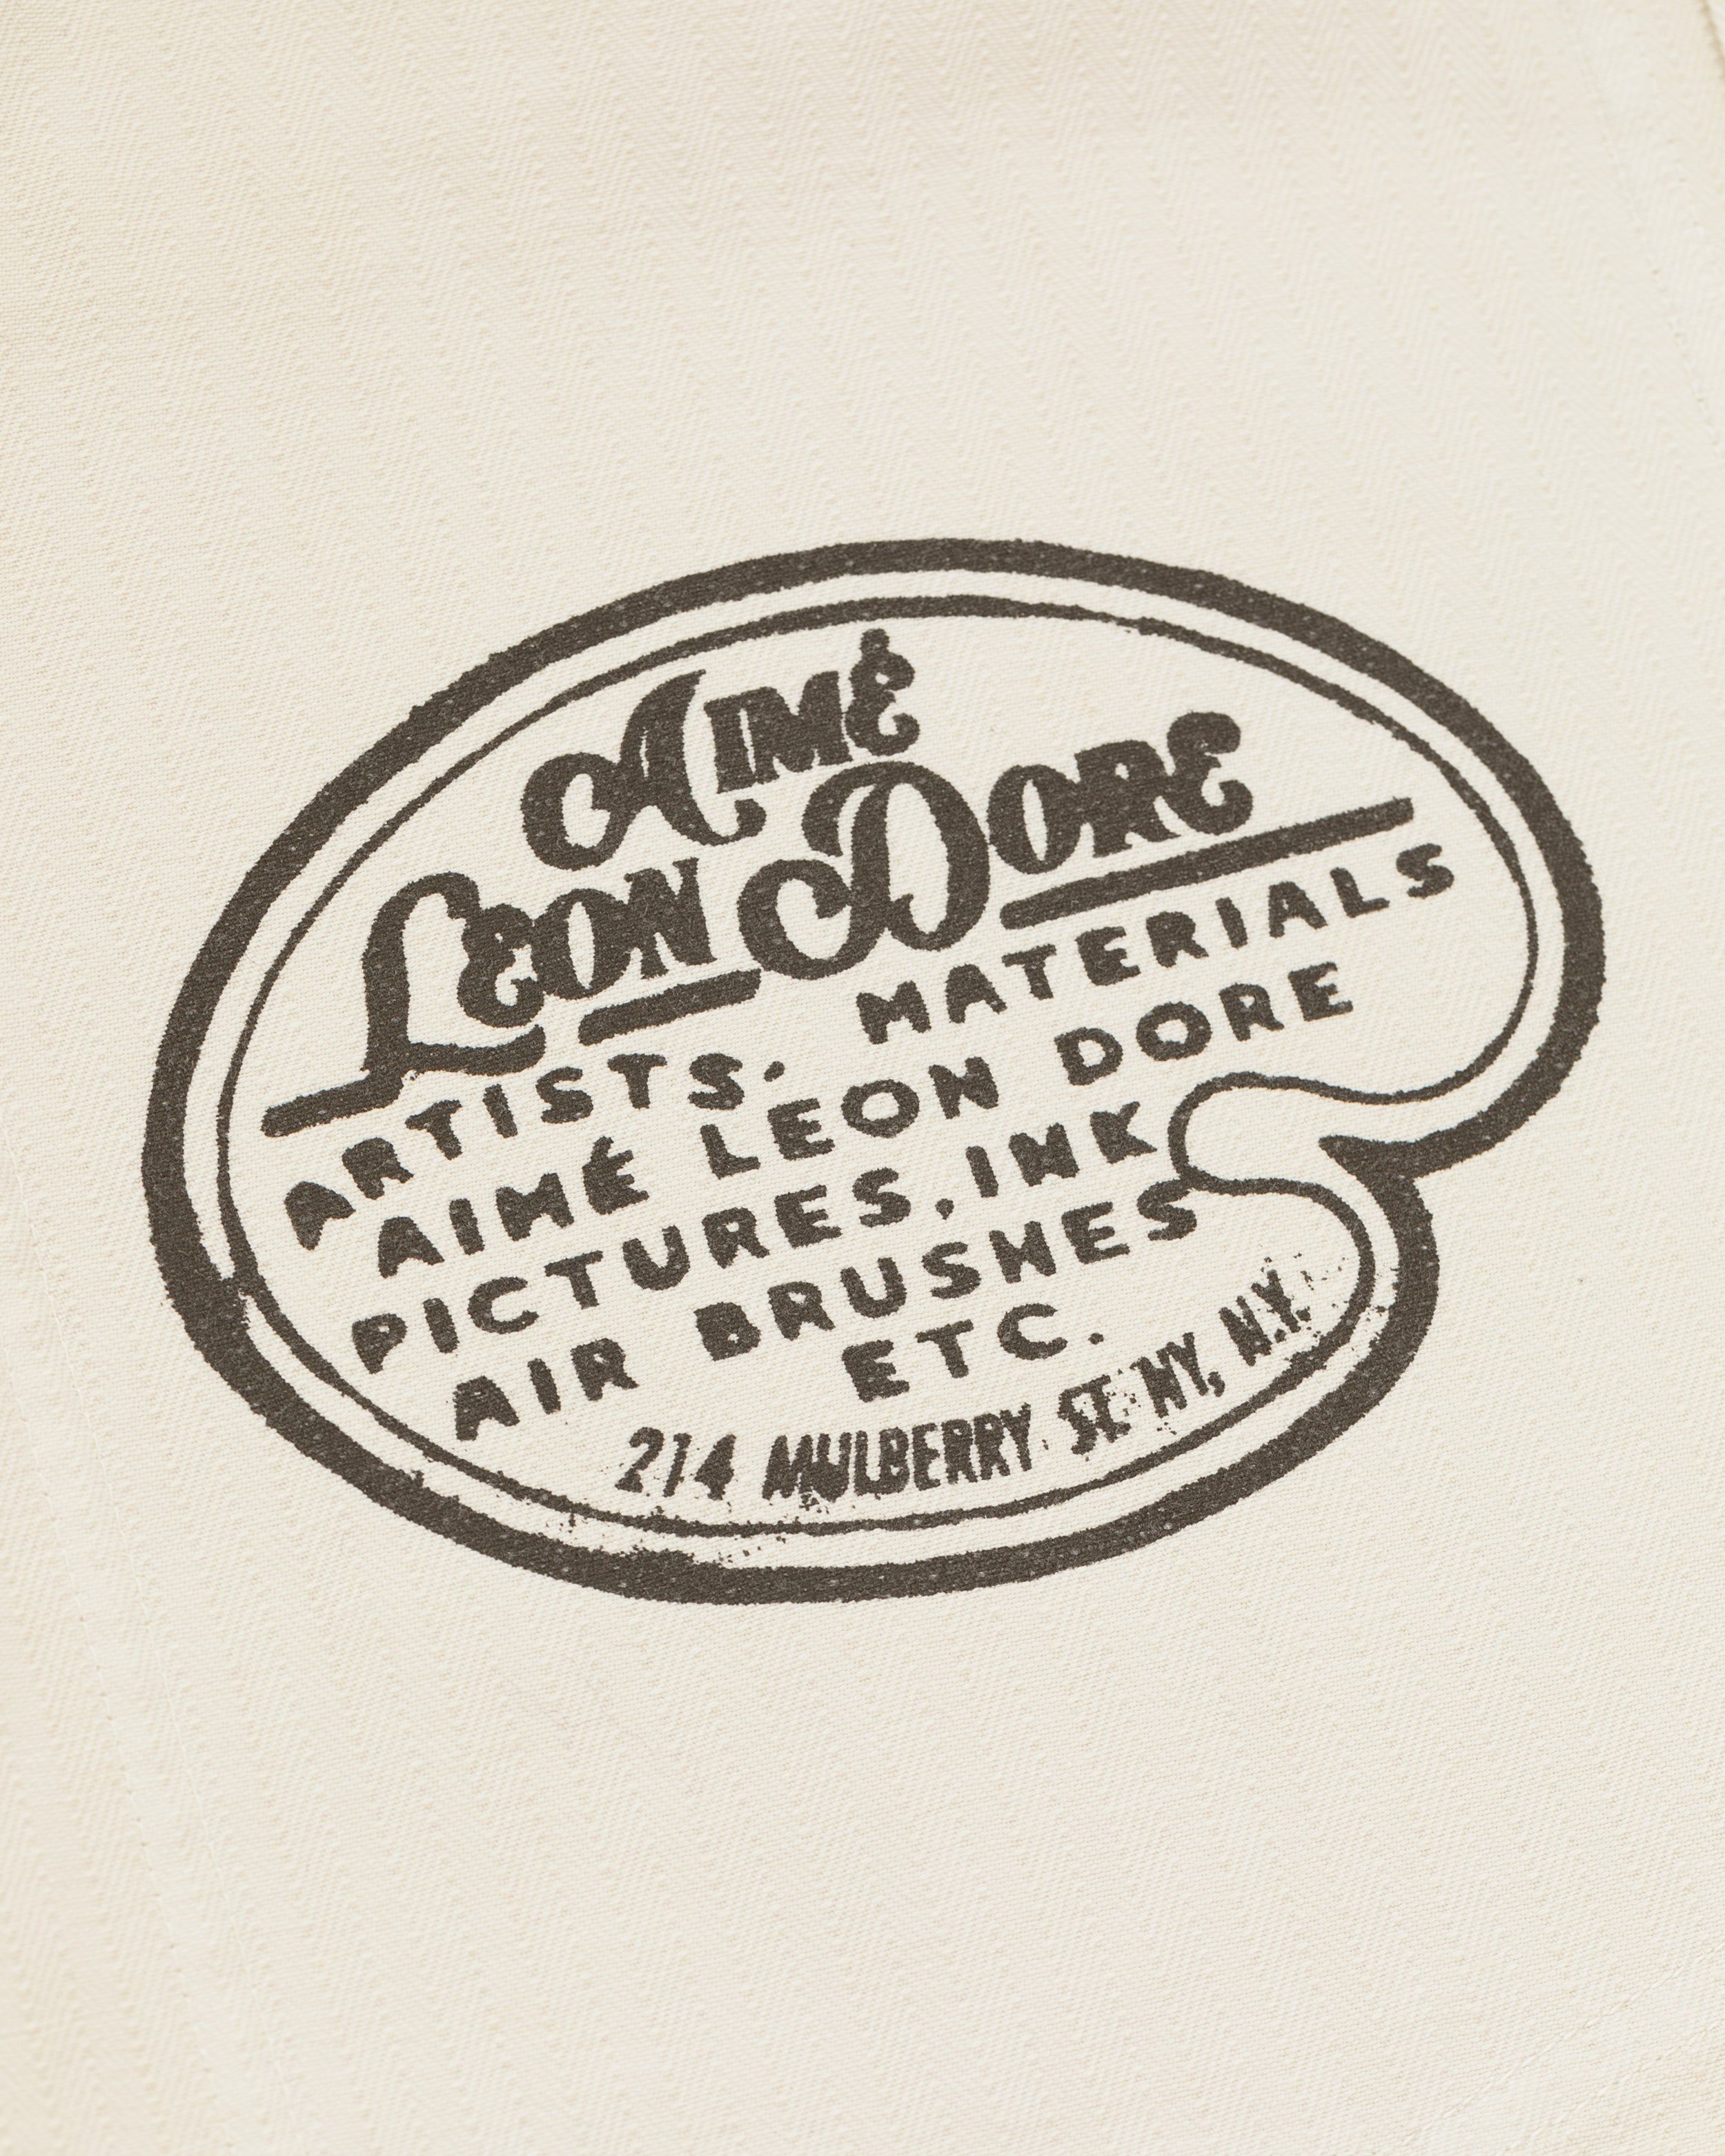 AIMÉ
LEON DORE
ARTISTS, MATERIALS
AIMÉ LEON DORE
PICTURES, INK
AIR BRUSHES
ETC.
214 MULBERRY ST. NY, N.Y.